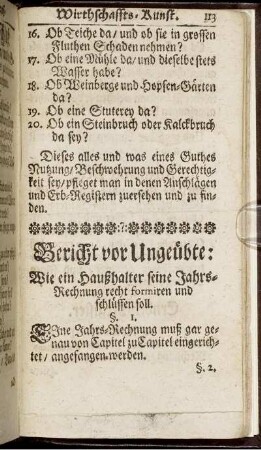 Wirthschaffts-Kunst. 113
16. Ob Teiche da/ und ob sie in grossen
Fluthen Schaden nehmen?
17. Ob eine Mühle da/ und dieselbe stets
Wasser habe?
18. Ob Weinberge und Hopfen-Gärten
da?
19. Ob eine Stuterey da?
20. Ob ein Steinbruch oder Kalckbruch
da sey?
Dieses alles und was eines Guthes
Nutzung/ Beschwehrung und Gerechtig-
keit sey/ pfleget man in denen Anschlägen
und Erb-Registern zuersehen und zu fin-
den.
Bericht vor Ungeübte:
Wie ein Haußhalter seine Jahrs-
Rechnung recht formiren und
schlüssen soll.
§. 1.
EIne Jahrs-Rechnung muß gar ge-
nau von Capitel zu Capitel eingerich-
tet/ angefangen werden.
§. 2.